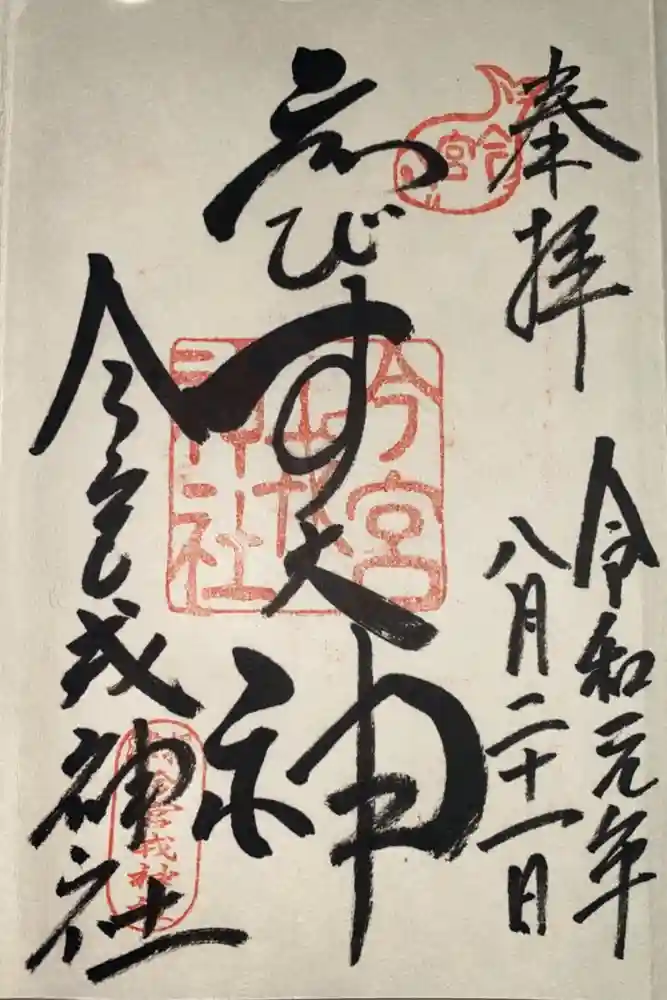 奉拝
令和元年
八月二十一日
ゑびす大神
今宮戎神社
今宮
今宮
戎
神社